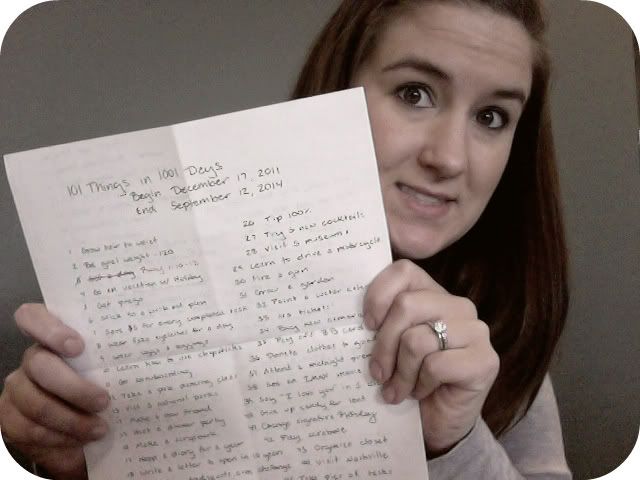 101 Things in 1001 Days
Begin December 17, 2011
End September 12, 2014
1 Grow hair to waist
2 Be goal weight - 120
4 Go on vacation w/ Holiday
5 Get prego
6 Stick to a workout plan
7 Save $5 for every completed task
8 Wear fake eyelashes for a day
Learn how to use chopsticks
Go snowboarding
Take a pole dancing class
13 Visit 3 national parks
14 Make a new friend
15 Host a dinner party
16 Make a scrapbook
17 Keep a diary for a year
18 Write a letter to open in 10 years
challenge
26 Tip 100%
27 Try 5 new cocktails
28 Visit 5 museums
29 Learn to drive a motorcycle
30 Fire a gun
31 Grow a garden
32 Paint a water color
33 tickets
34 Buy new camera
35 Pay off card
36 Donate clothes to
37 Attend a midnight
38 See an Imax movie
39 Say "I love you" in
40 Give up candy for lent
41 Change signature
42 Play scrabble
43 Organize closet
44 Visit Nashville